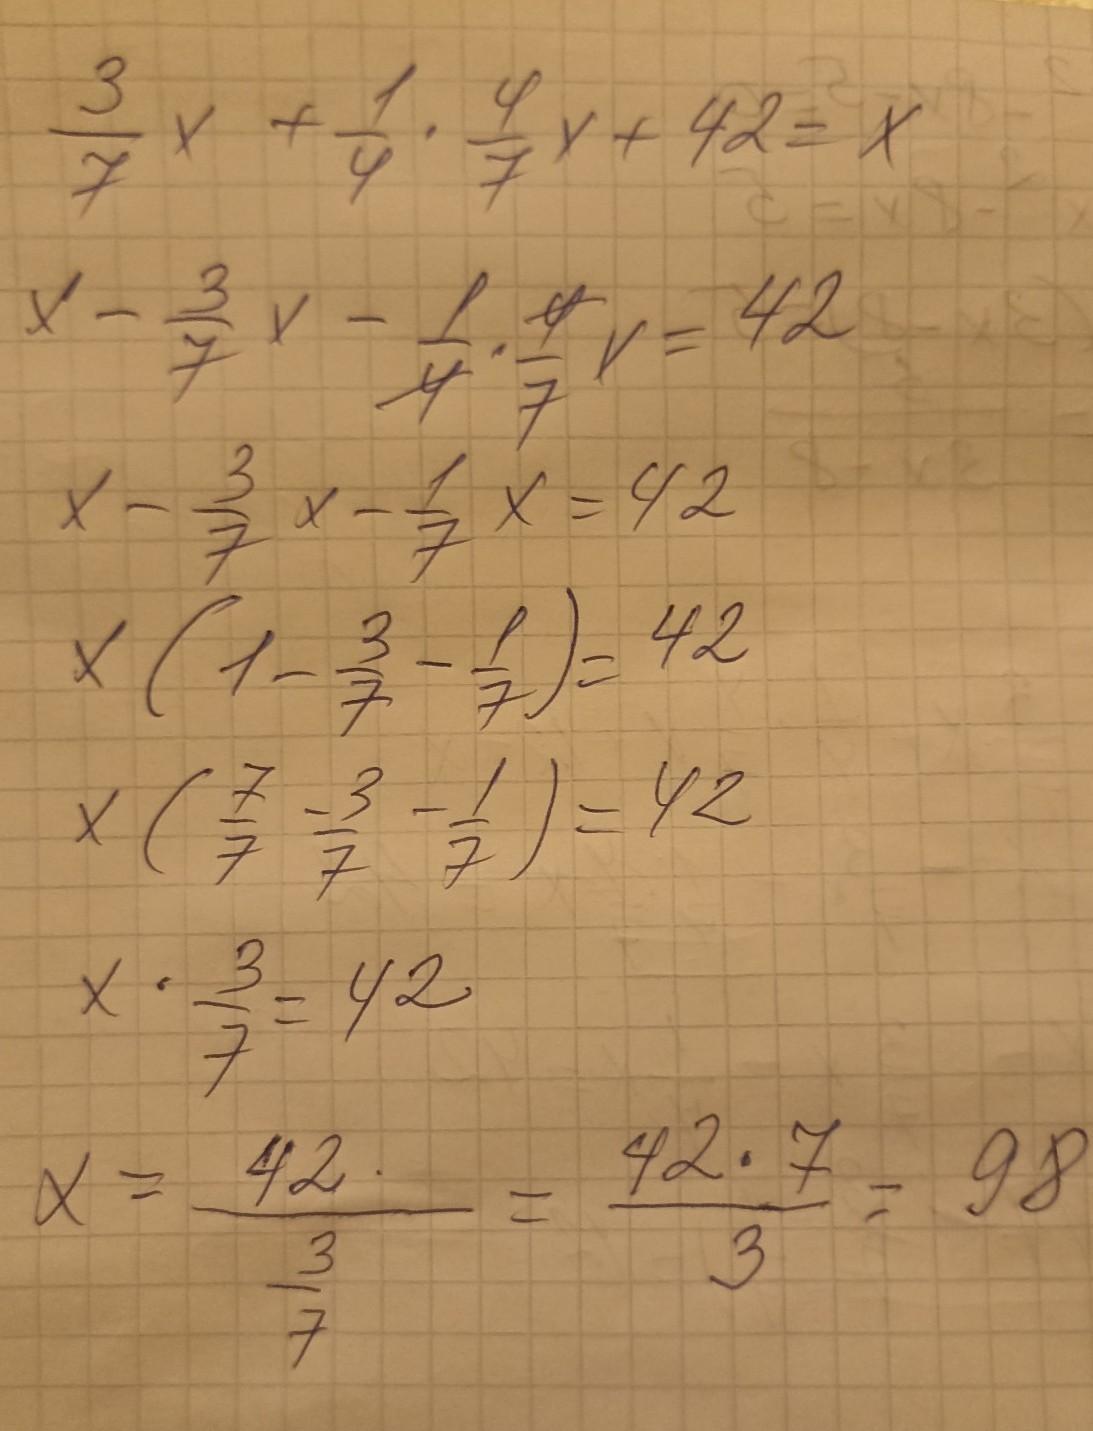 3/7 x + 1/4 · 4/7 x + 42 = x
x - 3/7 x - 1/4 · 4/7 x = 42
x - 3/7 x - 1/7 x = 42
x (1 - 3/7 - 1/7) = 42
x (7/7 - 3/7 - 1/7) = 42
x · 3/7 = 42
x = 42/(3/7) = 42 · 7/3 = 98